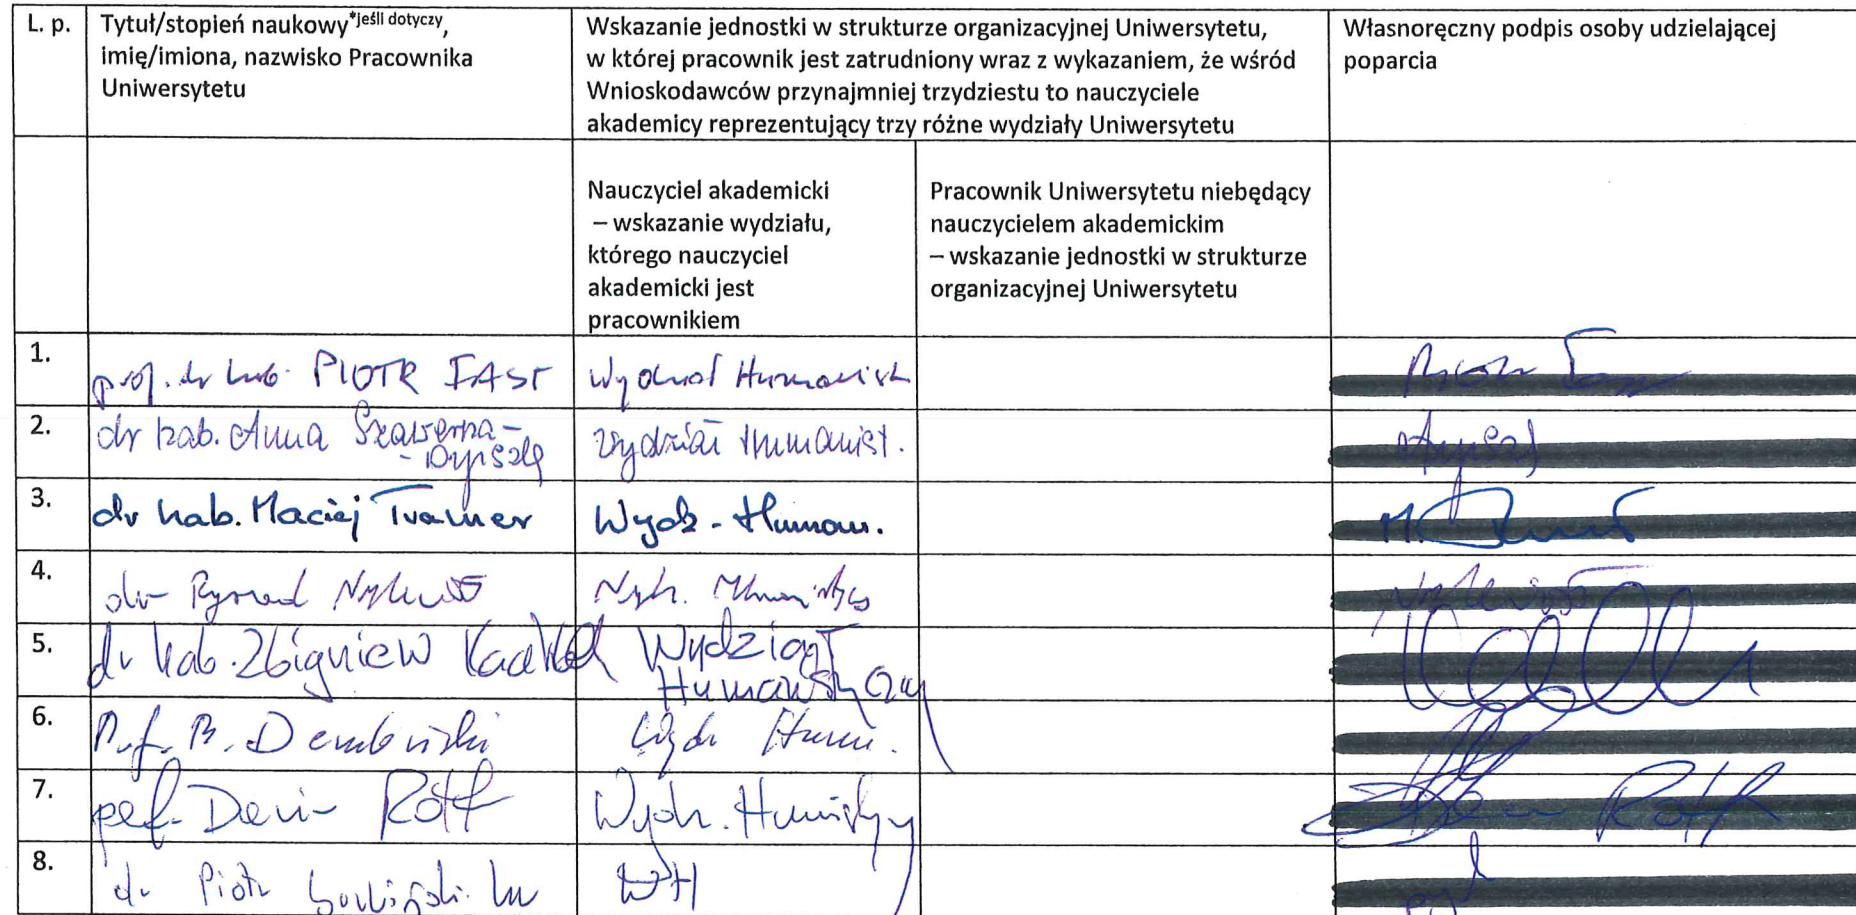 L. p.
Tytuł/stopień naukowy*jeśli dotyczy,
imię/imiona, nazwisko Pracownika
Uniwersytetu
Wskazanie jednostki w strukturze organizacyjnej Uniwersytetu,
w której pracownik jest zatrudniony wraz z wykazaniem, że wśród
Wnioskodawców przynajmniej trzydziestu to nauczyciele
akademicy reprezentujący trzy różne wydziały Uniwersytetu
Własnoręczny podpis osoby udzielającej
poparcia
Nauczyciel akademicki
– wskazanie wydziału,
którego nauczyciel
akademicki jest
pracownikiem
Pracownik Uniwersytetu niebędący
nauczycielem akademickim
– wskazanie jednostki w strukturze
organizacyjnej Uniwersytetu
1.
prof. dr hab. PIOTR FAST
Wydział
2.
dr hab. Anna
Wydział Humanist.
3.
dr hab. Maciej Tramer
Wydz. Human.
4.
dr
5.
dr hab. Zbigniew Kadłubek
Wydział
Humanistyczny
6.
Prof. B. Dembiński
Wydz. Hum.
7.
Wydz.
8.
dr Piotr
WH